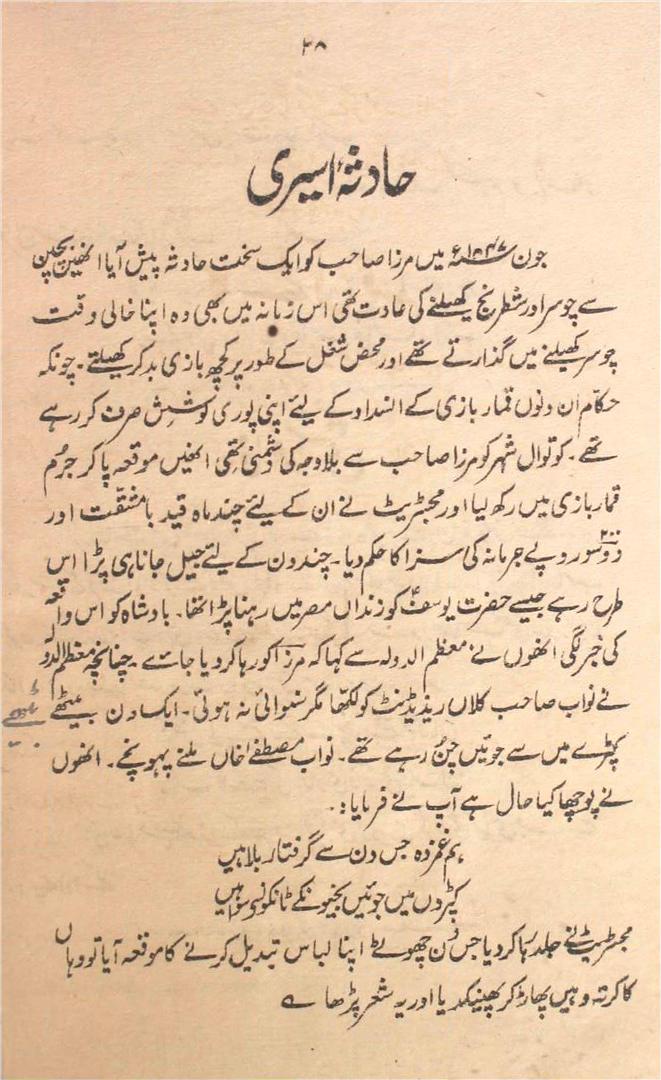 ۳۸
حادثۂ اسیری
جون ۱۸۴۷ء میں مرزا صاحب کو ایک سخت حادثہ پیش آیا انھیں بچپن
سے چوسر اور شطرنج کھیلنے کی عادت تھی اس زمانہ میں بھی وہ اپنا خالی وقت
چوسر کھیلنے میں گذارتے تھے اور محض شغل کے طور پر کچھ بازی بد کر کھیلتے۔ چونکہ
حکّام اُن دنوں قمار بازی کے انسداد کے لیئے اپنی پوری کوشِش صرف کر رہے
تھے۔ کوتوال شہر کو مرزا صاحب سے بلاوجہ کی دشمنی تھی انھیں موقعہ پا کر جرُم
قمار بازی میں رکھ لیا اور مجسٹریٹ نے ان کے لیئے چند ماہ قید با مشقّت اور
۲۰۰
دوّ سو روپے جرمانہ کی سزا کا حکم دیا۔ چند دن کے لیئے جیل جانا ہی پڑا اس
طرح رہے جیسے حضرت یوسفؑ کو زنداں مصر میں رہنا پڑا تھا۔ بادشاہ کو اس واقعہ
کی خبر لگی انھوں نے معظم الدولہ سے کہا کہ مرزا کو رہا کر دیا جائے۔ چنانچہ معظم الدولہ
نے نواب صاحب کلاں ریذیڈنٹ کو لکھا مگر سنوائی نہ ہوئی۔ ایک دن بیٹھے
کپڑے میں سے جوئیں چُن رہے تھے۔ نواب مصطفےٰ خاں ملنے پہونچے۔ انھوں
نے پوچھا کیا حال ہے آپ نے فرمایا:۔
ہم غمزدہ جس دن سے گرفتار بلا ہیں
کپڑوں میں جوئیں بخیونکے ٹانکوں سے سوا ہیں
مجسٹریٹ نے جلد رہا کر دیا جس دن چھوٹے اپنا لباس تبدیل کرنے کا موقعہ آیا تو وہاں
کا کرتہ وہیں پھاڑ کر پھینکدیا اور یہ شعر پڑھا ؎